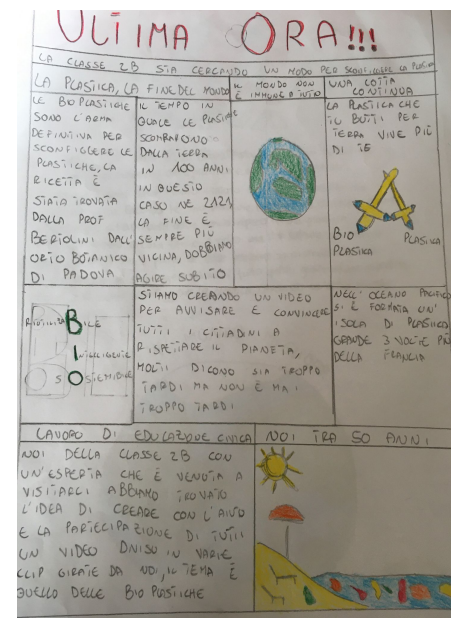 ULTIMA ORA!!!
LA CLASSE 2B STA CERCANDO UN MODO PER SCONFIGGERE LA PLASTICA
LA PLASTICA, LA FINE DEL MONDO
LE BIO PLASTICHE
SONO L'ARMA
DEFINITIVA PER
SCONFIGGERE LE
PLASTICHE, LA
RICETTA È
STATA TROVATA
DALLA PROF
BERTOLINI DALL'
ORTO BOTANICO
DI PADOVA
IL TEMPO IN
QUALE LE PLASTICHE
SCOMPAIONO
DALLA TERRA
IN 100 ANNI
IN QUESTO
CASO NE 2121
LA FINE È
SEMPRE PIÙ
VICINA, DOBBIAMO
AGIRE SUBITO
IL MONDO NON
È IMMUNE A TUTTO
UNA LOTTA
CONTINUA
LA PLASTICA CHE
TU BUTTI PER
TERRA VIVE PIÙ
DI TE
BIO
PLASTICA
PLASTICA
RIUTILIZZABILE
INTELLIGENTE
SOSTENIBILE
STIAMO CREANDO UN VIDEO
PER AVVISARE E CONVINCERE
TUTTI I CITTADINI A
RISPETTARE IL PIANETA,
MOLTI DICONO SIA TROPPO
TARDI MA NON È MAI
TROPPO TARDI
NELL' OCEANO PACIFICO
SI È FORMATA UN'
ISOLA DI PLASTICA
GRANDE 3 VOLTE PIÙ
DELLA FRANCIA
LAVORO DI EDUCAZIONE CIVICA
NOI DELLA CLASSE 2B CON
UN'ESPERTA CHE È VENUTA A
VISITARCI ABBIAMO TROVATO
L'IDEA DI CREARE CON L'AIUTO
E LA PARTECIPAZIONE DI TUTTI
UN VIDEO DIVISO IN VARIE
CLIP GIRATE DA NOI, IL TEMA È
QUELLO DELLE BIO PLASTICHE
NOI TRA 50 ANNI